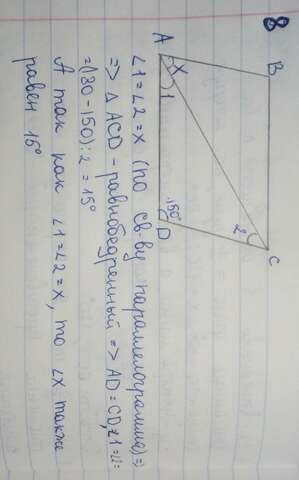 8
B
C
A
X
1
2
150°
D
∠1=∠2=X (по св-ву параллелограмма) =>
=> △ ACD - равнобедренный => AD=CD, ∠1=∠2=
=(180-150):2 = 15°
А так как ∠1=∠2=X, то ∠X также
равен 15°